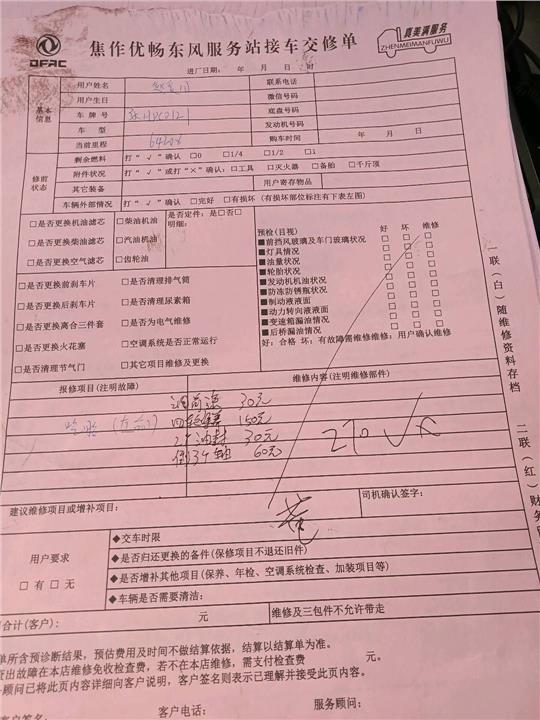 DFAC
焦作优畅东风服务站接车交修单
真美满服务
ZHENMEIMANFUWU
进厂日期： 年 月 日 时
基本信息
用户姓名
联系电话
用户生日
微信号码
车牌号
底盘号码
车型
发动机号码
当前里程
购车时间 年 月 日
修前状态
剩余燃料 打“√”确认 □0 □1/4 □1/2 □1
附件状况 打“√”或打“×”确认：□工具 □灭火器 □备胎 □千斤顶
其它装备
用户寄存物品
车辆外部情况 打“√”确认 □完好 □有损坏（有损坏部位标注有下表左图）
□是否更换机油滤芯 □柴油机油 是否定件：是□否□
□是否更换柴油滤芯 □汽油机油 明细：
□是否更换空气滤芯 □齿轮油
□是否更换前刹车片 □是否清理排气筒
□是否更换后刹车片 □是否清理尿素箱
□是否更换离合三件套 □是否为电气维修
□是否更换火花塞 □空调系统是否正常运行
□是否清理节气门 □其它项目维修及更换
预检(目视) 好 坏 维修
■前挡风玻璃及车门玻璃状况 □ □ □
■灯具情况 □ □ □
■油量状况 □ □ □
■轮胎状况 □ □ □
■发动机机油状况 □ □ □
■防冻防锈瓶状况 □ □ □
■制动液液面 □ □ □
■动力转向液液面 □ □ □
■变速箱漏油情况 □ □ □
■后桥漏油情况 □ □ □
好：合格 坏：有故障需维修维修：用户确认维修
报修项目(注明故障)
维修内容(注明维修部件)
30元
150元
2个油封 30元
60元
270
建议维修项目或增补项目：
司机确认签字：
用户要求
□有 □无
◆交车时限
◆是否归还更换的备件(保修项目不退还旧件)
◆是否增补其他项目(保养、年检、空调系统检查、加装项目等)
◆车辆是否需要清洁：
合计(客户)： 元
维修及三包件不允许带走
单所含预诊断结果，预估费用及时间不做结算依据，结算以结算单为准。
查出故障在本店维修免收检查费，若不在本店维修，需支付检查费 元。
顾问已将此页内容详细向客户说明，客户签名则表示已理解并接受此页内容。
客户签名： 客户电话： 服务顾问：
一联（白）随维修资料存档
二联（红）财务